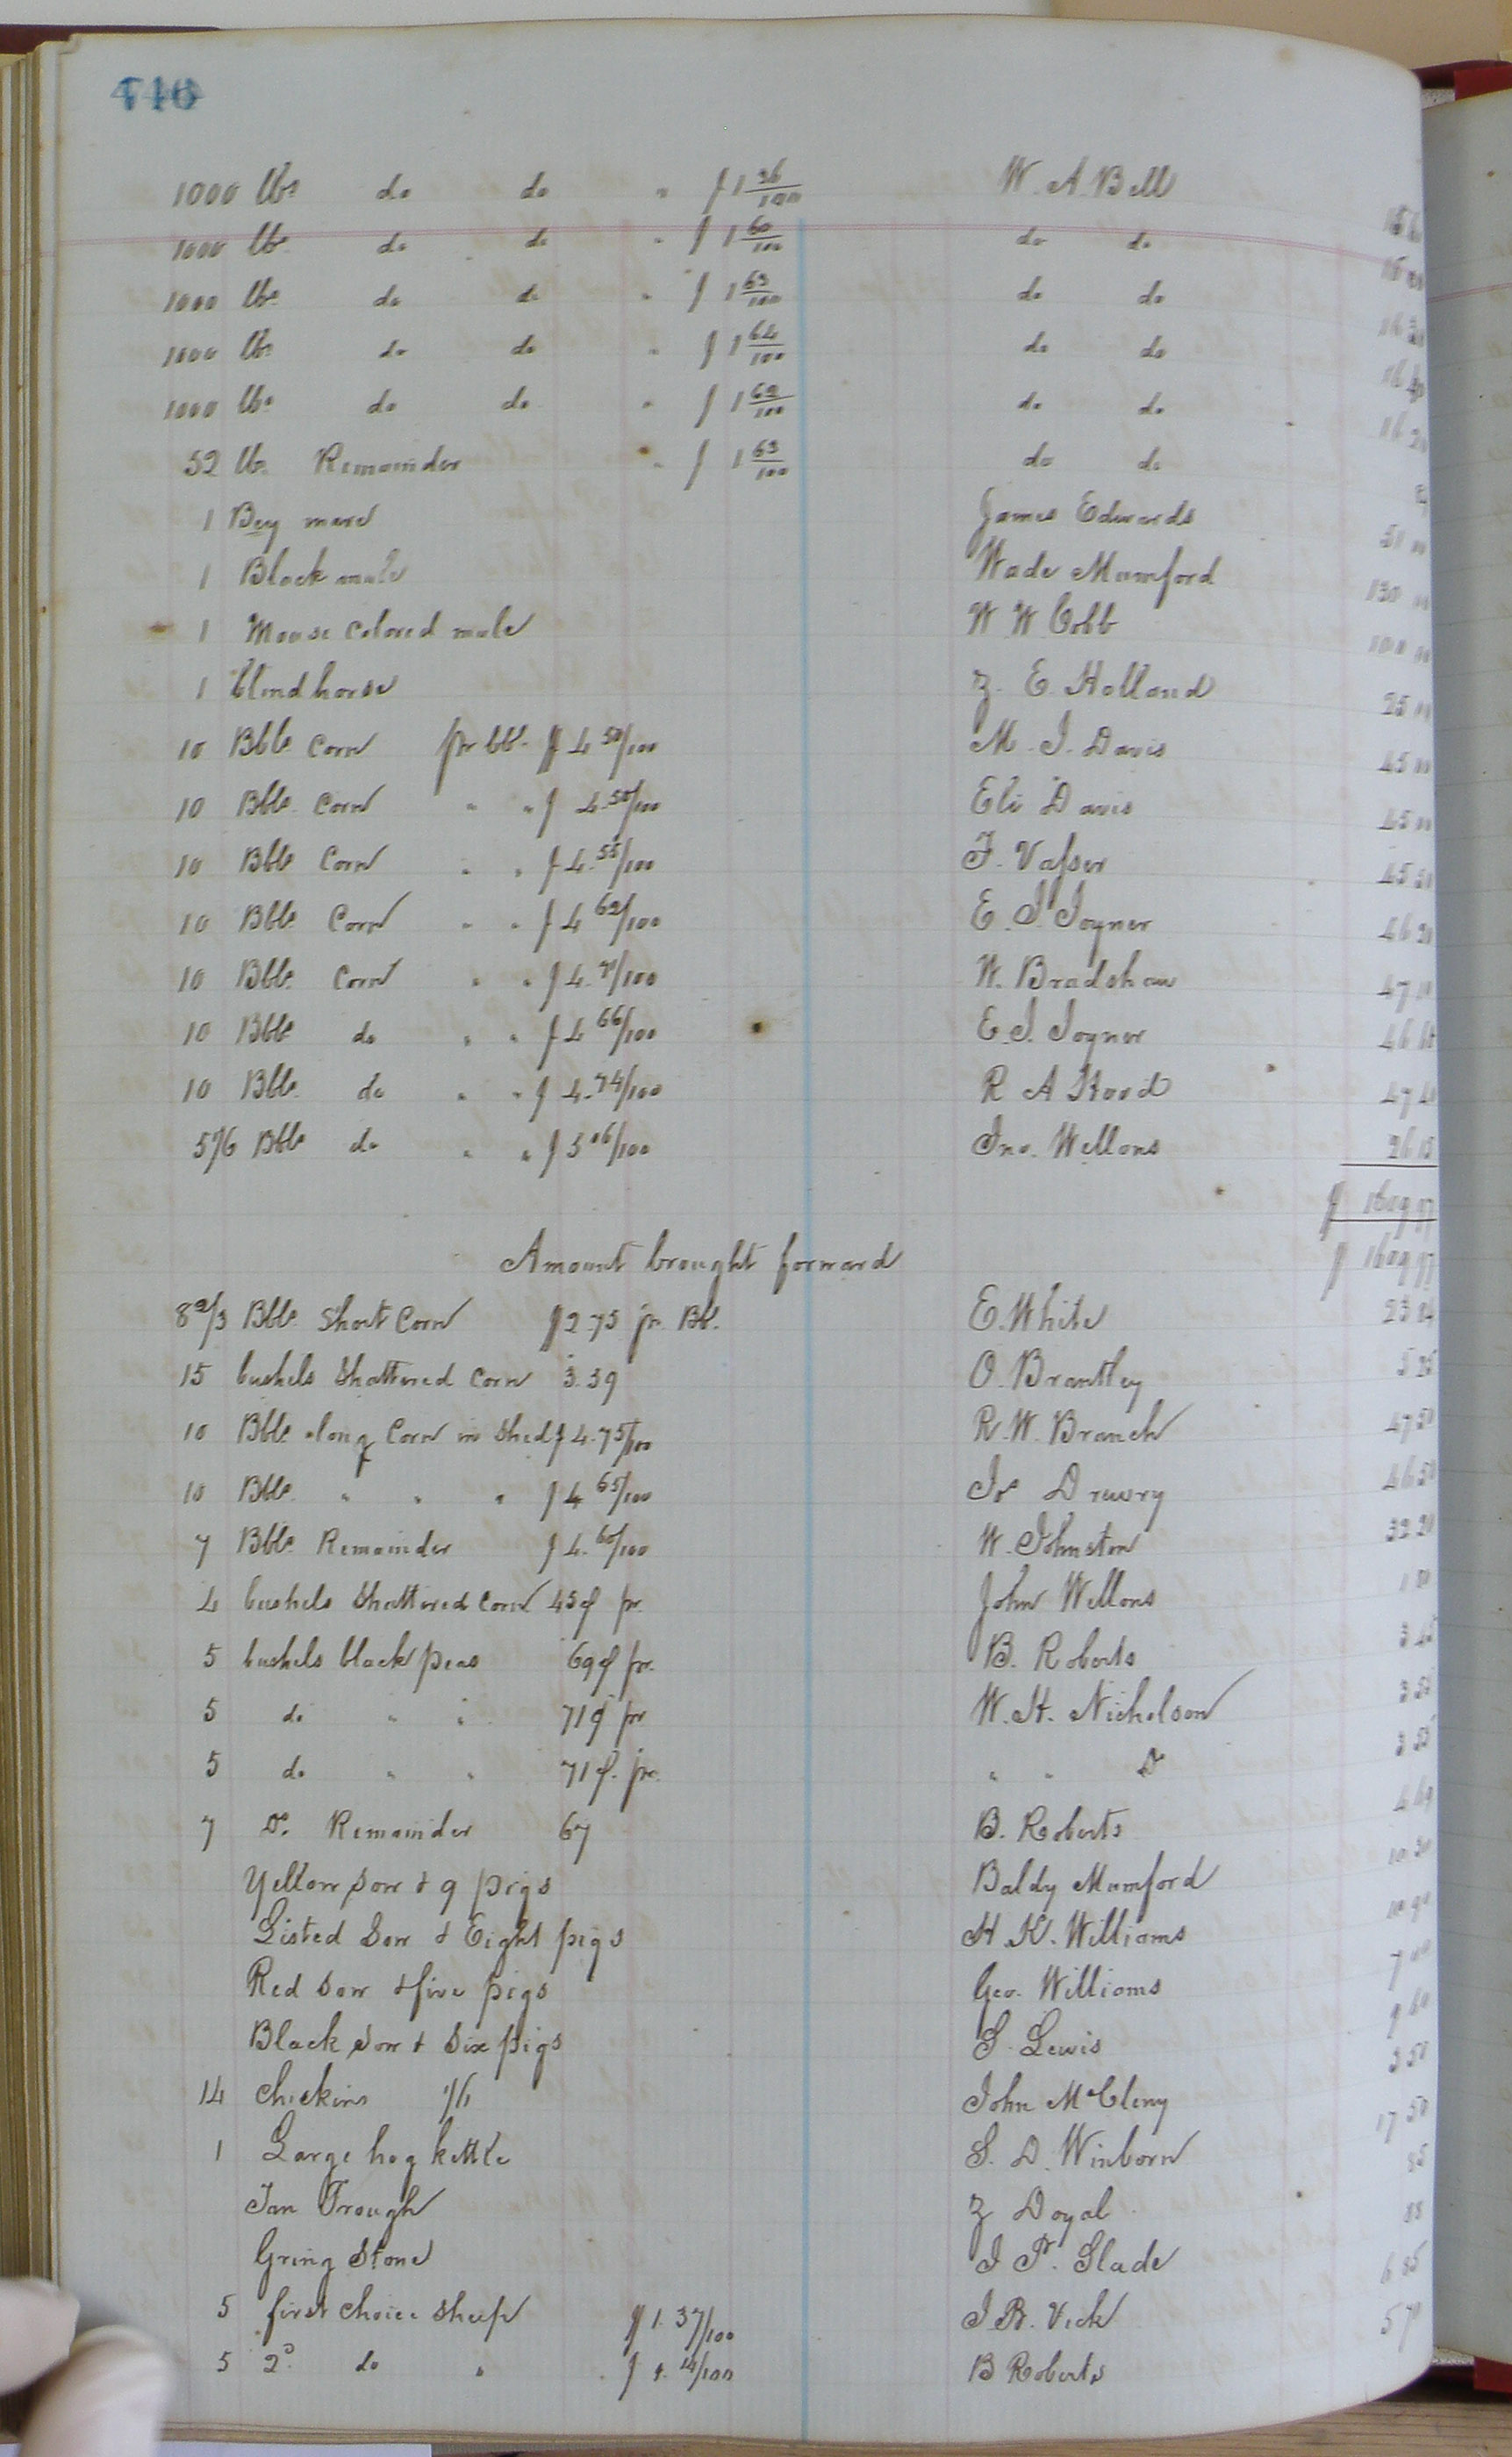 1000 lbs do do " $1 56/100 W. A. Bell
1000 lbs do do " $1 60/100 do do 16 00
1000 lbs do do " $1 63/100 do do 16 30
1000 lbs do do " $1 64/100 do do 16 40
1000 lbs do do " $1 62/100 do do 16 20
52 lbs Remainder " $1 63/100 do do
1 Bay mare James Edwards 51 00
1 Black mule Wade Mumford 130 00
1 Mouse Colored mule W W Cobb 100 00
1 blind horse Z. E. Holland 25 00
10 Bbls Corn pr bbl. $4 50/100 M. J. Davis 45 00
10 Bbls Corn " " $4.50/100 Eli Davis 45 00
10 Bbls Corn " " $4.55/100 J. Vasser 45 50
10 Bbls Corn " " $4 62/100 E. J. Joyner 46 20
10 Bbls Corn " " $4.71/100 W. Bradshaw 47 10
10 Bbls do " " $4 66/100 E. J. Joyner 46 60
10 Bbls do " " $4.74/100 R A Hood 47 40
5 1/6 Bbls do " " $5 06/100 Jno. Wellons 26 15
$ 1609 97
Amount brought forward $ 1609 97
8 2/3 Bbls Short Corn $2.75 pr Bbl. E. White 23 84
15 bushels Shattered Corn 3.39 O. Brantley
10 Bbls long Corn in Shed $4.75/100 R. W. Branch 47 50
10 Bbls " " " $4 65/100 Js Drewry 46 50
7 Bbls Remainder $4.60/100 W. Johnston 32 20
4 bushels Shattered Corn 45¢ pr. John Wellons 1 80
5 bushels black peas 69¢ pr. B. Roberts 3 45
5 do " " 71¢ pr W. H. Nicholson 3 55
5 do " " 71¢ pr. " " Do 3 55
7 Do. Remainder 67 B. Roberts 4 69
Yellow Sow & 9 pigs Baldy Mumford 10 30
Listed Sow & Eight pigs H. K. Williams 10 90
Red Sow & five pigs Geo. Williams 7 00
Black Sow & Six pigs S. Lewis 9 60
14 Chickins John McCleny 3 50
1 Large hog kettle S. D. Winborn 17 50
Tan Trough Z Doyal
Gring Stone J P. Slade
5 first choice Sheep $1.37/100 J. R. Vick 6 85
5 2d. do " $1.14/100 B Roberts 5 70